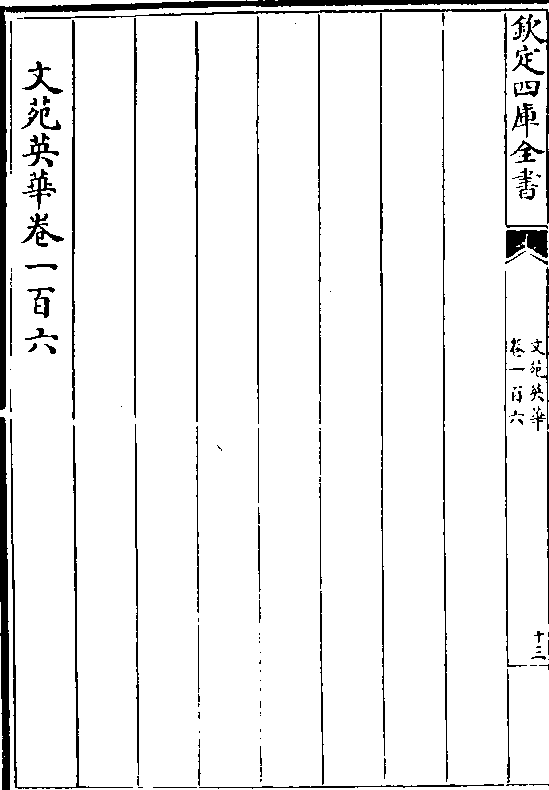 欽定四庫全書
文苑英華
卷一百六
十三
文苑英華卷一百六